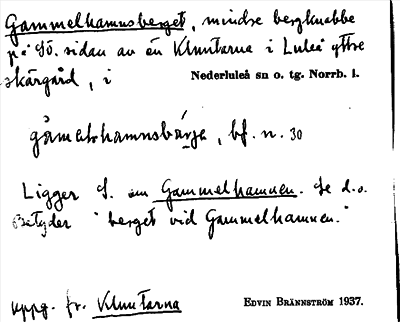 Gammelhamnsberget, mindre bergknabbe
på sö. sidan av ön Kluntarna i Luleå yttre
skärgård, i Nederluleå sn o. tg. Norrb. l.
bf. n. 30
Ligger S. om Gammelhamnen. Se d.o.
Betyder "berget vid Gammelhamnen."
uppg. fr. Kluntarna
EDVIN BRÄNNSTRÖM 1937.